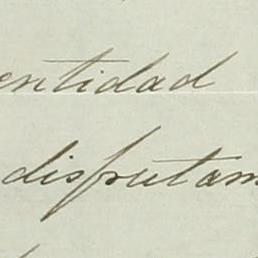 entidad
disfrutam